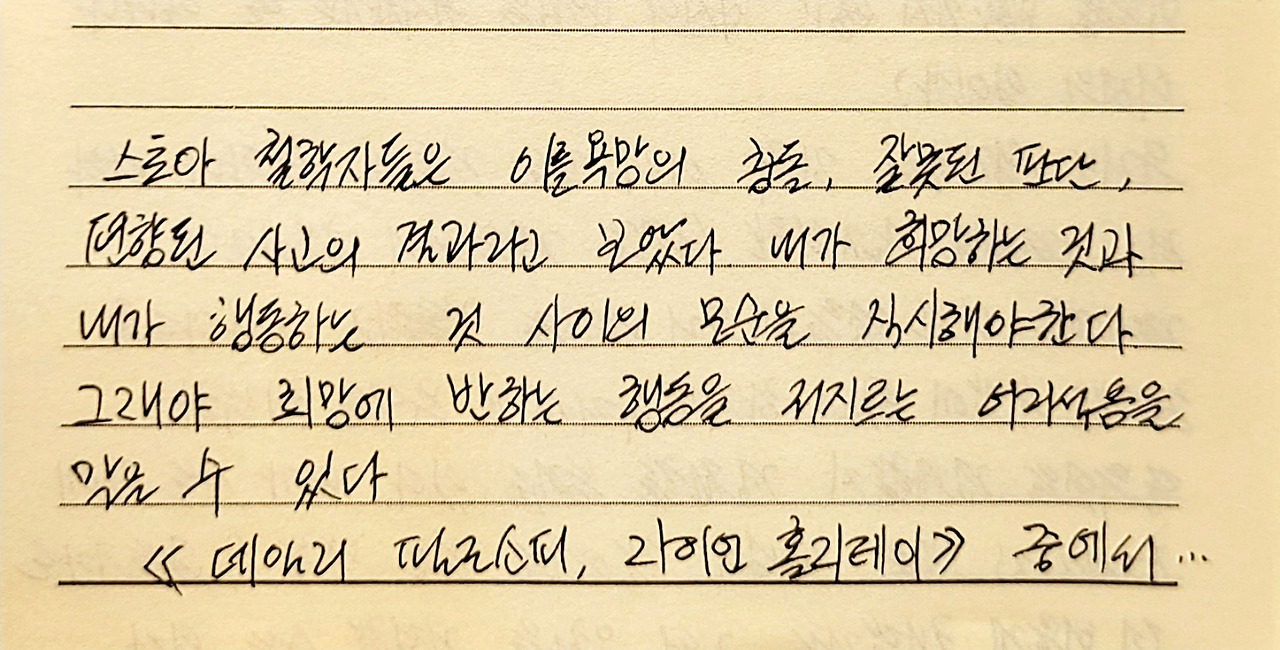 스토아 철학자들은 이를 욕망의 충돌, 잘못된 판단,
편향된 사고의 결과라고 보았다. 내가 희망하는 것과
내가 행동하는 것 사이의 모순을 직시해야한다.
그래야 희망에 반하는 행동을 저지르는 어리석음을
막을 수 있다
《데일리 필로소피, 라이언 홀리데이》 중에서...